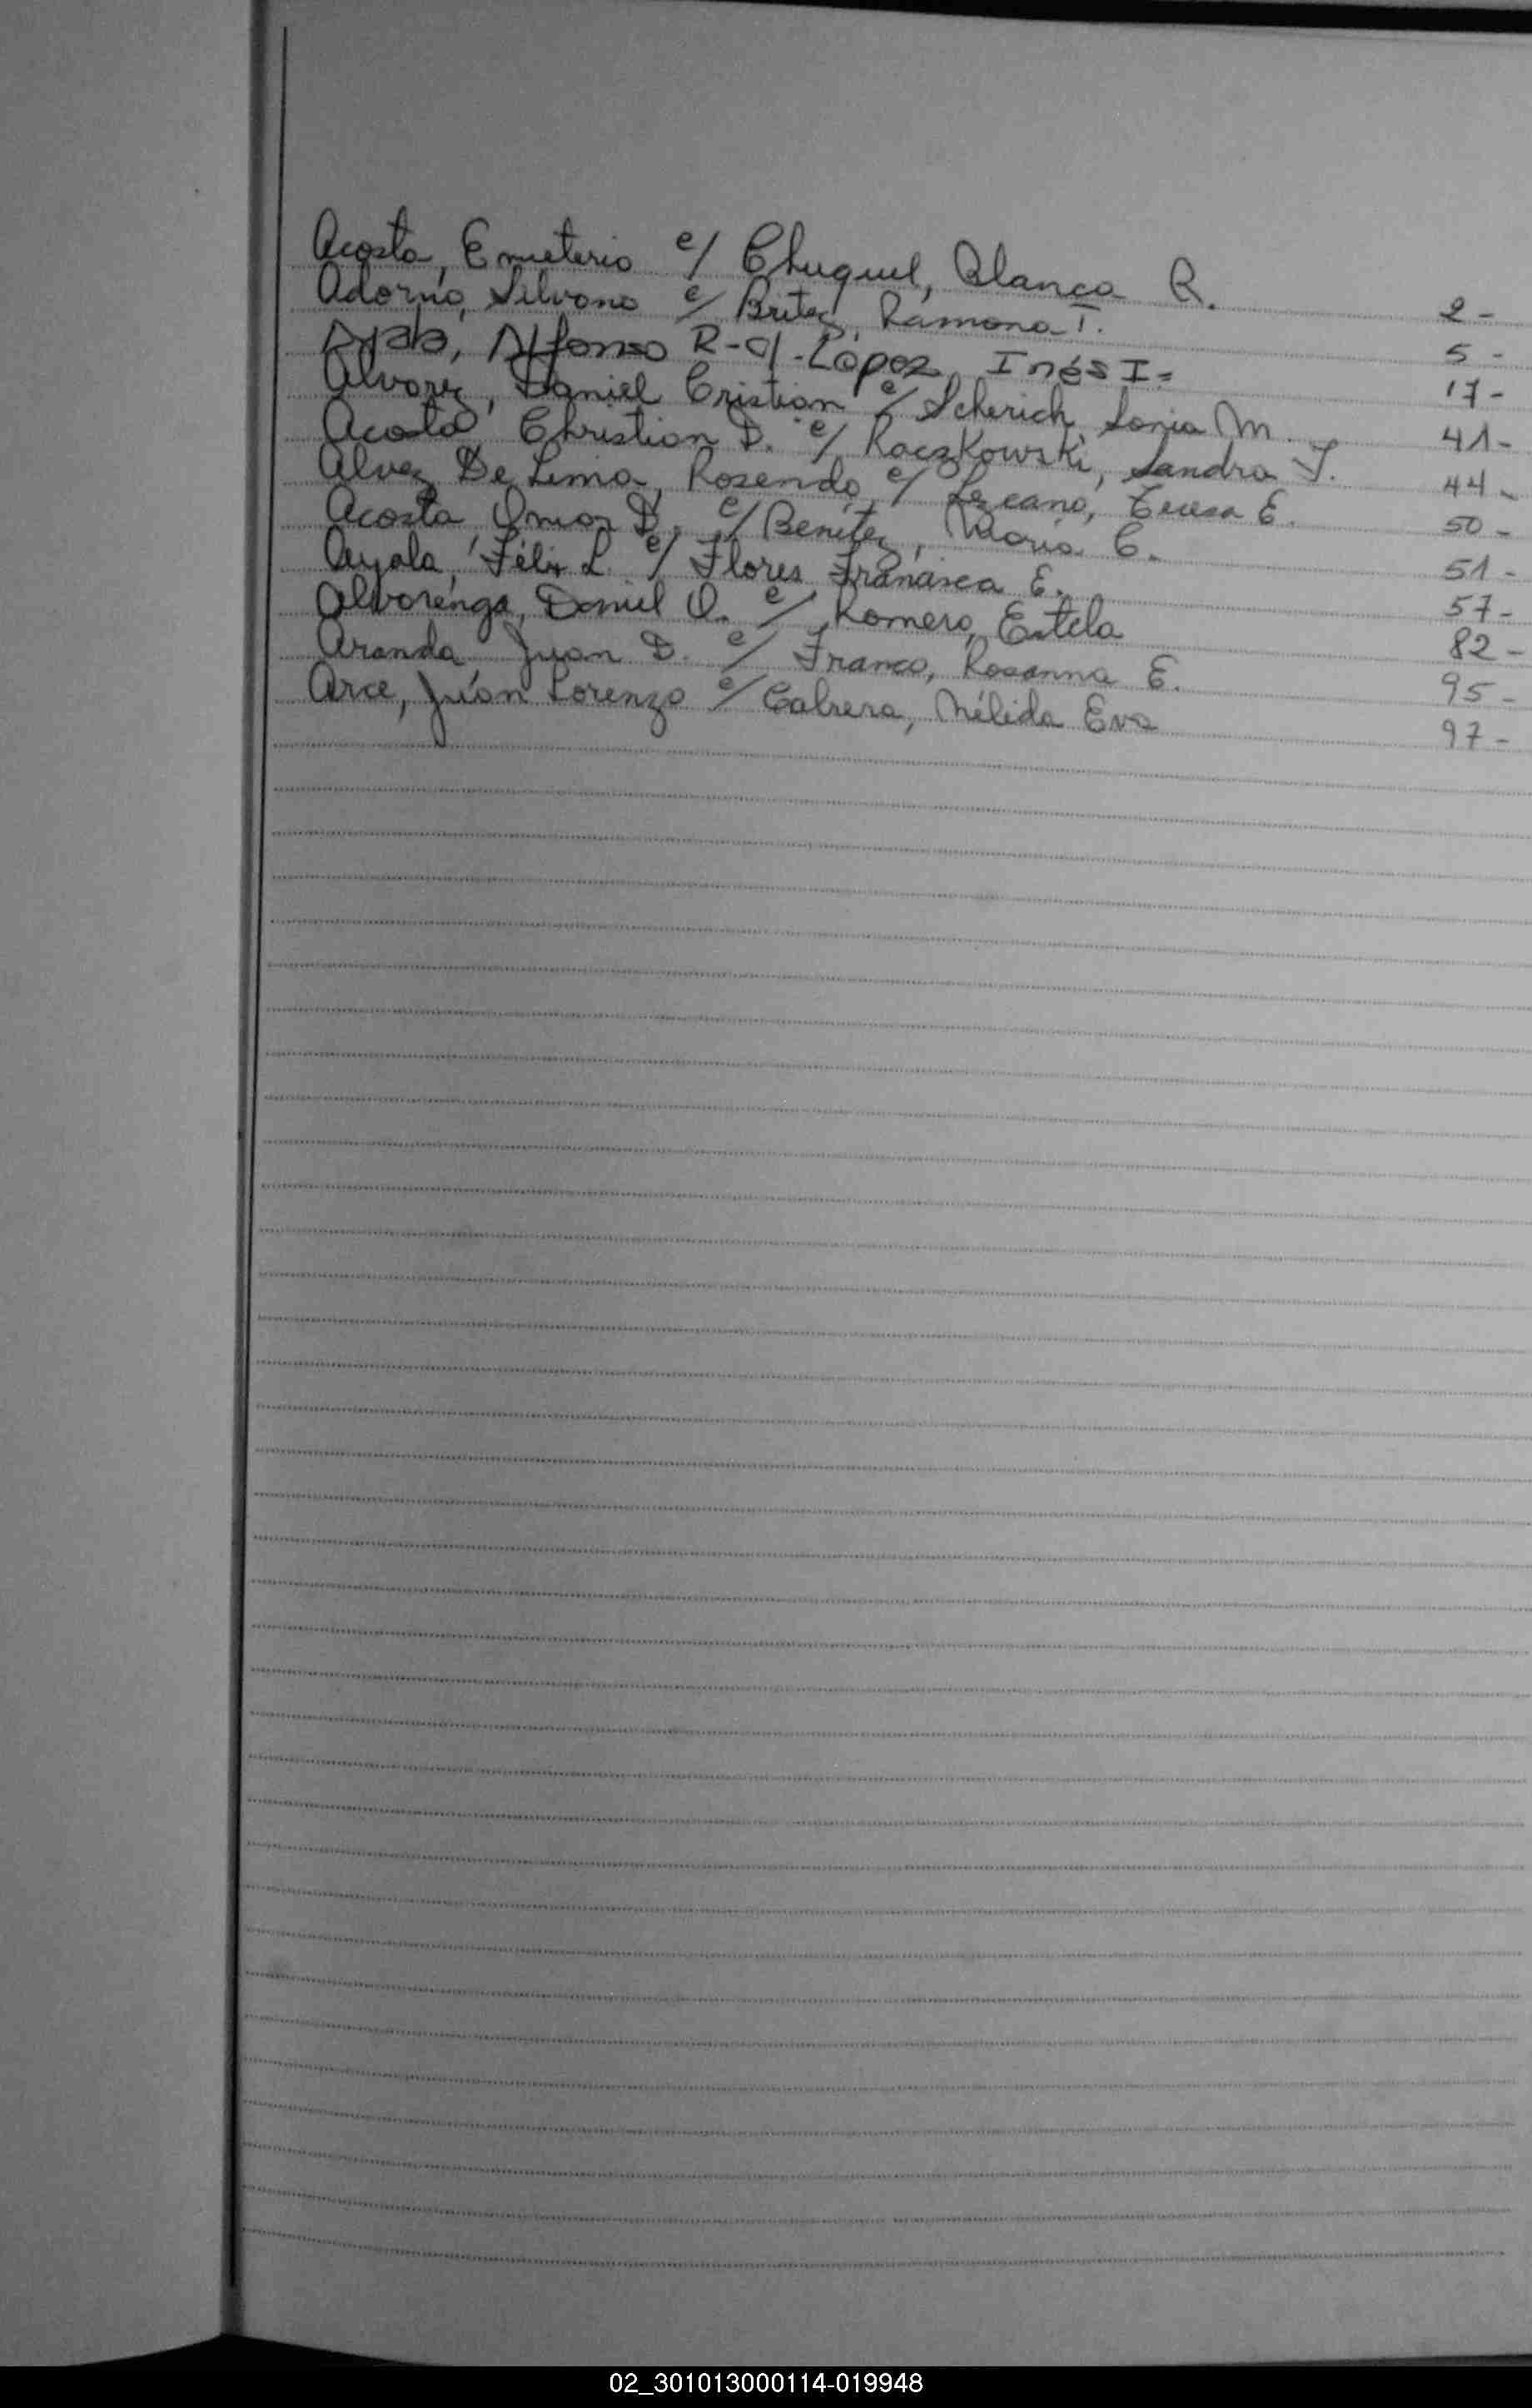 Acosta, Emeterio c/ Chuquel, Blanca R. 2-
Adorno, Silvano c/ Britez, Ramona I. 5-
Ayala, Alfonso R- c/- López, Inés I= 17-
Alvarez, Daniel Cristian c/ Scherich, Sonia M. 41-
Acosta, Christian D. c/ Raczkowski, Sandra J. 44-
Alvez De Lima, Rosendo c/ Lezcano, Teresa E. 50-
Acosta, Omar D. c/ Benítez, María C. 51-
Ayala, Félix L. c/ Flores Francisca E. 57-
Alvarenga, Daniel O. c/ Romero, Estela 82-
Aranda Juan D. c/ Franco, Rosanna E. 95-
Arce, Juan Lorenzo c/ Cabrera, Nélida Eva 97-
02_301013000114-019948